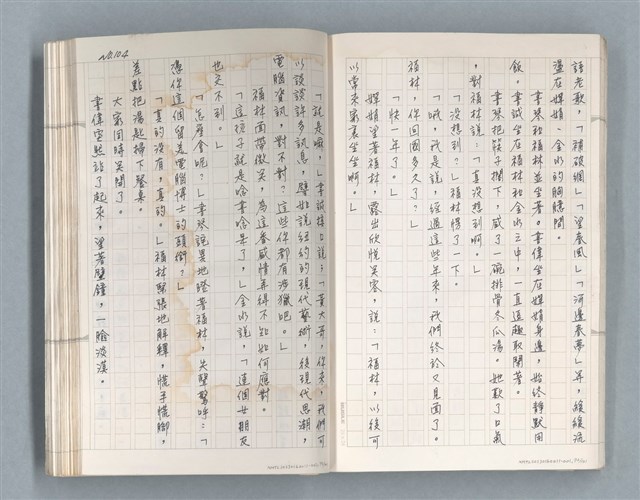 語老歌，「補破網」「望春風」「河邊春夢」等，緩緩流
盪在媒婧、金水的胸臆間。
李琴和福林並坐著。李偉坐在媒婧身邊，始終靜默用
飯。李誠坐在福林和金水之中，一直逗趣取鬧著。
李琴把筷子擱下，盛了一碗排骨冬瓜湯。她歎了口氣
，對福林說：「真沒想到啊。」
「沒想到？」福林愕了一下。
「哦，我是說，經過這些年來，我們終於又見面了。
福林，你回國多久了？」
「快一年了。」
媒婧望著福林，露出欣悅笑容，說：「福林，以後可
以常來家裏坐坐啊。」
NO.104
「就是嘛，」李誠接口說：「黃大哥，你來，我們可
以談談許多訊息，譬如說紐約的現代藝術，後現代思潮，
電腦資訊，對不對？這些你都有涉獵吧。」
福林面帶微笑，為這番感情弄得不知如何應對。
「這孩子就是啥事啥足了，」金水說，「連個女朋友
也交不到。」
「怎麼會呢？」李琴詫異地瞪著福林，失聲驚呼：「
憑你這個留美電腦博士的頭銜？」
「真的沒有，真的。」福林緊張地解釋，慌手慌腳，
差點把湯匙掃下餐桌。
大家同時笑開了。
李偉突然站了起來，望著壁鐘，一臉淡漠。